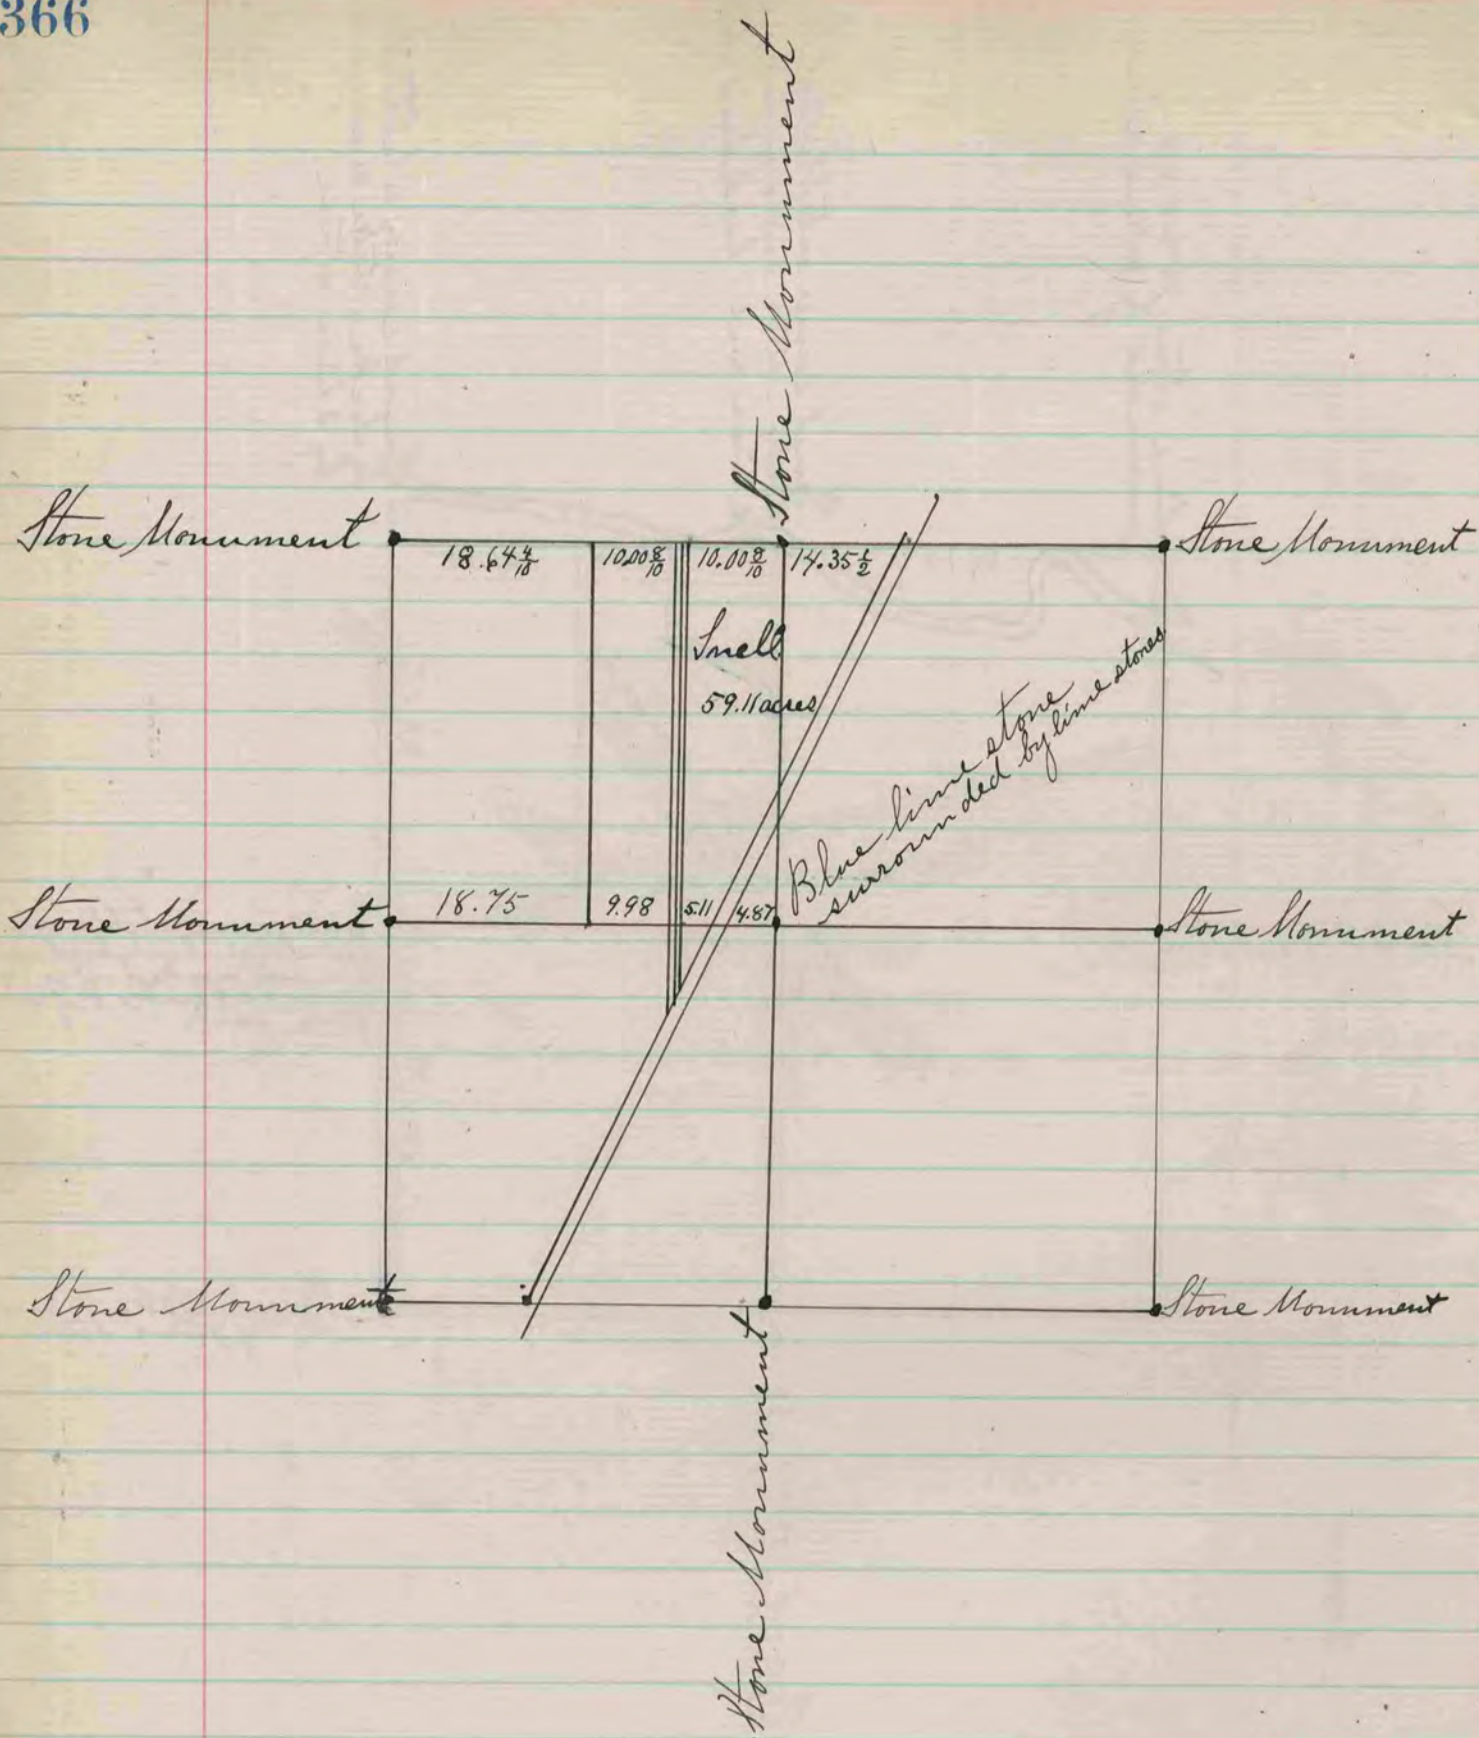 366
Stone Monument
Stone Monument
Stone Monument
18.64 4/10
10.00 8/10
10.00 8/10
14.35 1/2
Snell
59.11 acres
Blue lime stone
surrounded by lime stones
Stone Monument
18.75
9.98
5.11
4.87
Stone Monument
Stone Monument
Stone Monument
Stone Monument